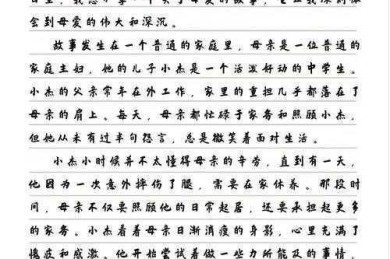 会到母爱的伟大和深沉。
故事发生在一个普通的家庭里,母亲是一位普通的
家庭主妇,她的儿子小杰是一个活泼好动的中学生。
小杰的父亲常年在外工作,家里的重担几乎都落在了
母亲的肩上。每天,母亲都忙碌于家务和照顾小杰,
但她从未有过半句怨言,总是微笑着面对生活。
小杰小时候并不太懂得母亲的辛劳,直到有一天,
他因为一次意外摔伤了腿,需要在家休养。那段时
间,母亲不仅要照顾他的日常起居,还要承担起更多
的家务。小杰看着母亲日渐消瘦的身影,心里充满了
愧疚和感激。他开始尝试着做一些力所能及的事情,